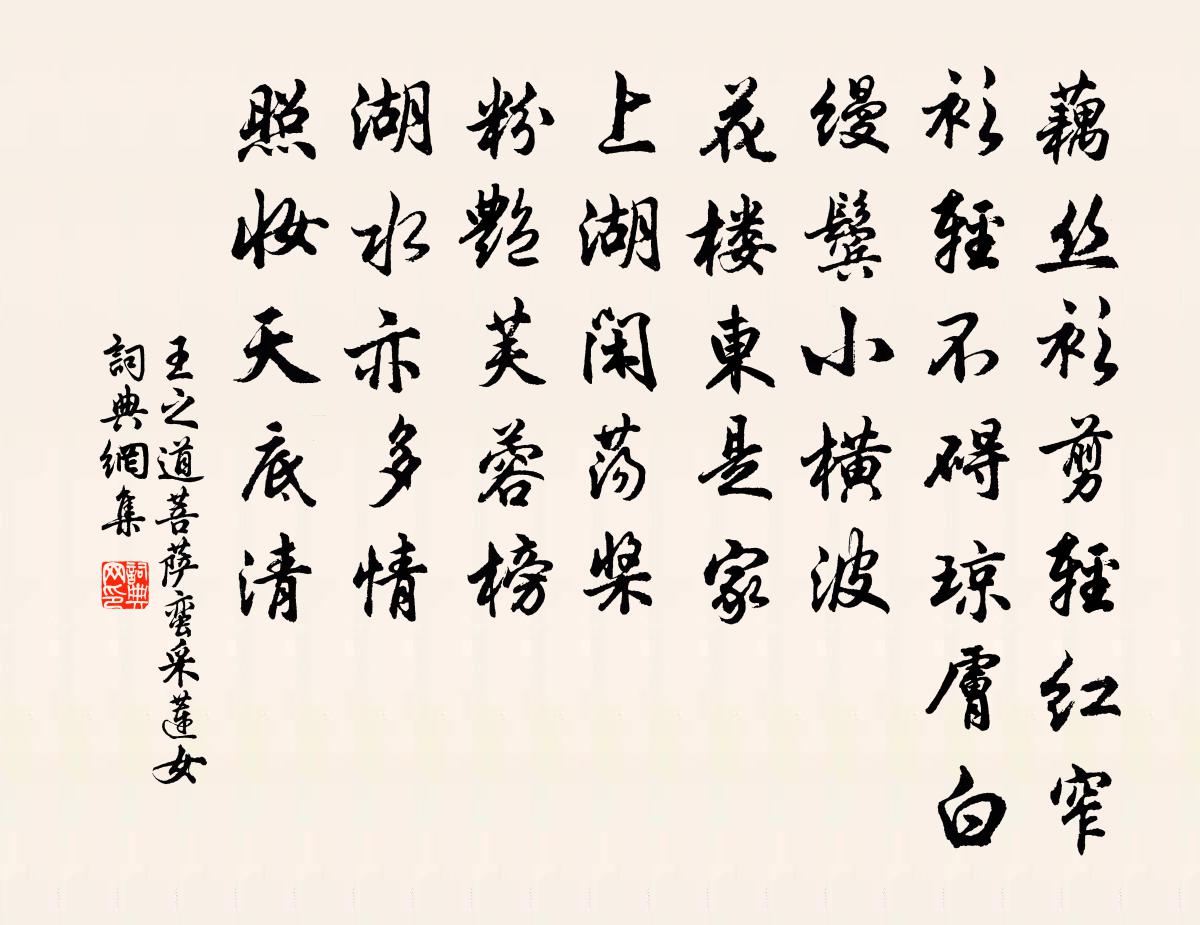 藕丝衫剪輕红窄
衫輕不碍琼膚白
缦鬓小橫波
花楼東是家
上湖闲荡桨
粉艷芙蓉榜
湖水亦多情
照妆天底清
王之道菩萨蛮采蓮女
詞典網集